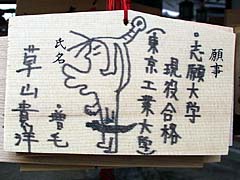 願事
・志願大学
現役合格
(東京工業大学)
・増毛
氏名
草山貴洋